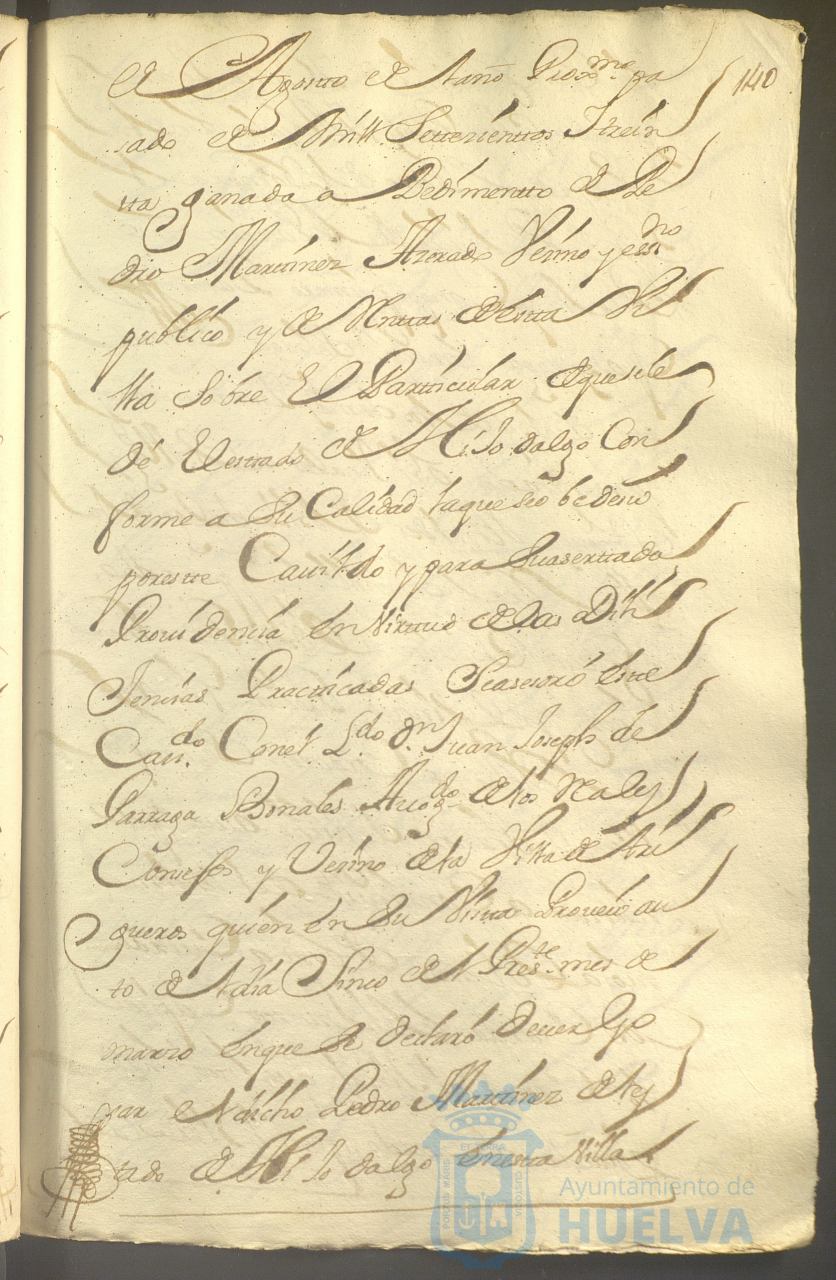 140
de Agosto de el año Proxmo pa
sado de Mill Settezienttos Ytrein
tta ganada a Pedimentto de Pe
dro Martinez Vezino y essno
publico y de Renttas de estta Vi
lla sobre El Partticular de que se le
dé El esttado de Hijo dalgo Con
forme a Su Calidad la que se obedezio
por estte Cavildo y para Su asertada
Providencia en Virttud de las Dili
Jencias Practticadas Se asesoró este
Cavdo Con el Ldo dn Juan Joseph de
Parraga Bonales Avogdo de los Rales
Consejos y Vezino de la Villa de Tri
gueros quien en Su Vista Proveio au
to el dia Sinco de el Preste mes de
marzo en que Se declaró dever Go
zar el dicho Pedro Martinez de el es
tado de Hijo dalgo en esta Villa
Ayuntamiento de
HUELVA